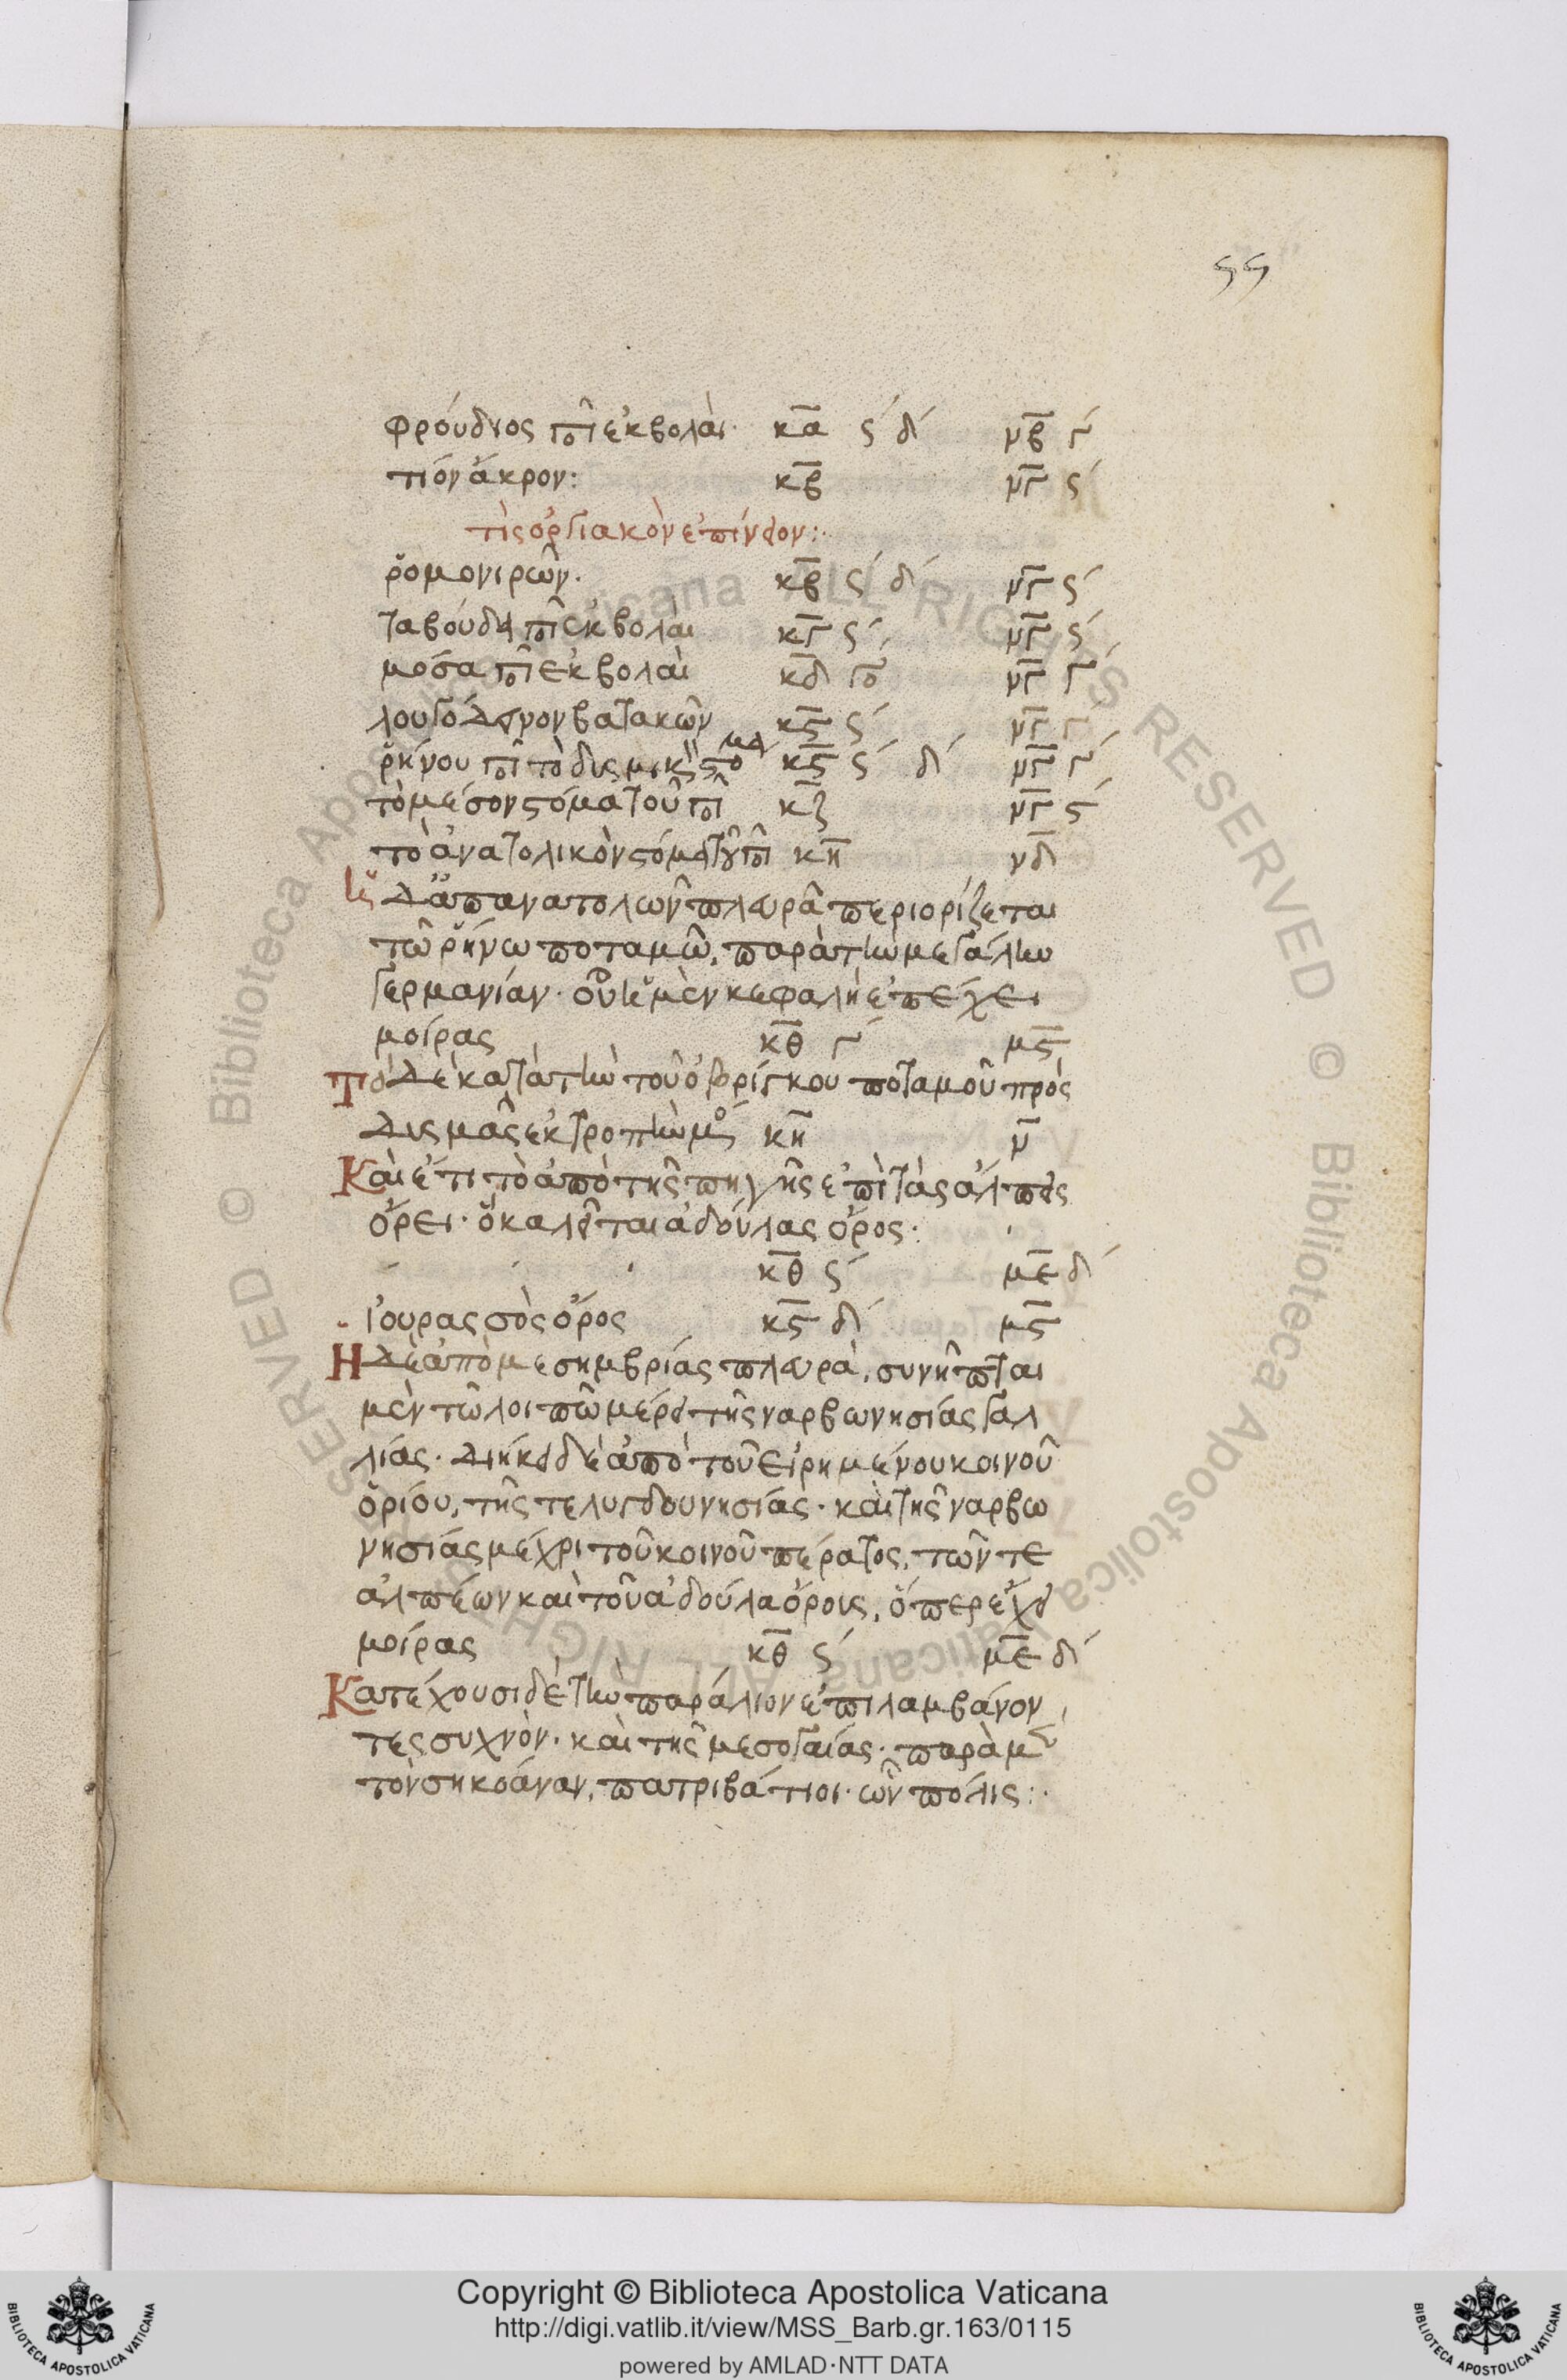 55
φρούδιος ποτ ἐκβολαὶ· κα ς´ δ´ νβ γ´
τιόν ἄκρον: κβ νγ ς´
ῥομονιρῶν. κβ ς´ δ´ νγ ς´
ταβούδα ποτ ἐκβολαὶ κγ ς´ νγ ς´
μόσα ποτ ἐκβολαὶ κδ γο νγ γ´
λουγόδεινον βατακῶν κς ς´ νγ γ´
ῥήνου ποτ τὸ δυσμικ στο μα κς ς´ δ´ νγ γ´
τὸ μέσον στόμα τοῦ ποτ κζ νγ ς´
τὸ ἀνατολικὸν στόμα τοῦ ποτ κη νδ
δ ἀπ ανατολῶν πλευρᾶ περιορίζεται
τῶ ῥήνω ποταμῶ, παρὰ τὴν μεγάλην
γερμανίαν· οὗ ἡ μὲν κεφαλὴ ἐπέχει
μοίρας κθ γ´ μς
Τὸ δὲ κατὰ τὴν τοῦ ὀβρίγκου ποταμοῦ πρὸς
δυσμὰς ἐκτροπὴν μο κη ν
Καὶ ἔτι τὸ ἀπὸ τῆς πηγῆς ἐπὶ τὰς ἄλπεις
ὄρει· ὃ καλεῖται ἀδούλας ὄρος·
κθ ς´ με δ´
ἰουρασσὸς ὄρος κς δ´ μς
Η δὲ ἀπὸ μεσημβρίας πλευρὰ, συνῆπται
μὲν τῶ λοιπῶ μέρει τῆς ναρβωνησίας γαλ
λίας· διήκει δὲ ἀπὸ τοῦ εἰρημένου κοινοῦ
ὁρίου, τῆς τε λυγδουνησίας· καὶ τῆς ναρβω
νησίας μέχρι τοῦ κοινοῦ πέρατος, τῶν τε
ἀλπέων καὶ τοῦ ἀδούλα ὄρους, ὅπερ ἔχει
μοίρας κθ ς´ με δ´
Κατέχουσι δὲ τὴν παράλιον ἐπιλαμβάνον
τες συχνὸν· καὶ τῆς μεσογαίας· παρὰ μὲν
τὸν σηκοάναν, πατριβάτιοι· ὧν πόλις:·
Copyright © Biblioteca Apostolica Vaticana
http://digi.vatlib.it/view/MSS_Barb.gr.163/0115
powered by AMLAD·NTT DATA
BIBLIOTECA APOSTOLICA VATICANA
BIBLIOTECA APOSTOLICA VATICANA